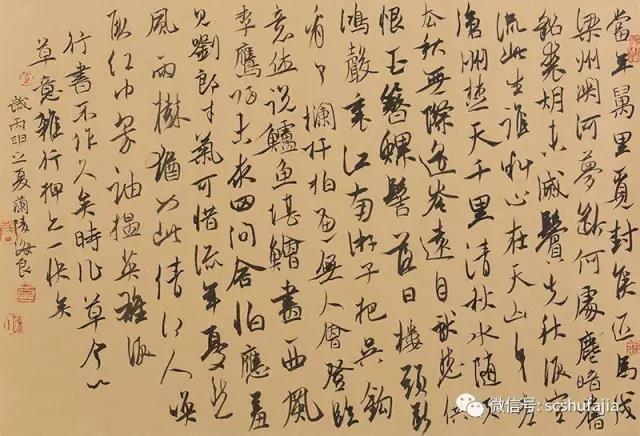 當年萬里覓封侯匹馬戍
梁州關河夢斷何處塵暗舊
貂裘胡未滅鬢先秋淚空
流此生誰料心在天山身老
滄洲楚天千里清秋水隨天
去秋無際遙岑遠目獻愁供
恨玉簪螺髻落日樓頭斷
鴻聲裏江南游子把吳鈎
看了欄杆拍遍無人會登臨
意休說鱸魚堪鱠盡西風
季鷹歸未求田問舍怕應羞
見劉郎才氣可惜流年憂愁
風雨樹猶如此倩何人喚
取紅巾翠袖揾英雄淚
行書不作久矣時作草今以
草意雜行押之一快矣
歲丙申之夏蘭陵海良
微信号: scshufajia